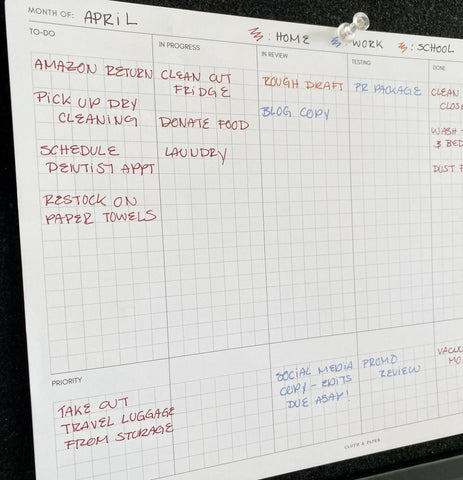 MONTH OF: APRIL
: HOME : WORK : SCHOOL
TO-DO
AMAZON RETURN
PICK UP DRY
CLEANING
SCHEDULE
DENTIST APPT
RESTOCK ON
PAPER TOWELS
IN PROGRESS
CLEAN OUT
FRIDGE
DONATE FOOD
LAUNDRY
IN REVIEW
ROUGH DRAFT
BLOG COPY
TESTING
PR PACKAGE
DONE
CLEAN
WASH
& BED
DUST
PRIORITY
TAKE OUT
TRAVEL LUGGAGE
FROM STORAGE
SOCIAL MEDIA
COPY - EDITS
DUE ASAP!
PROMO
REVIEW
CLOTH & PAPER